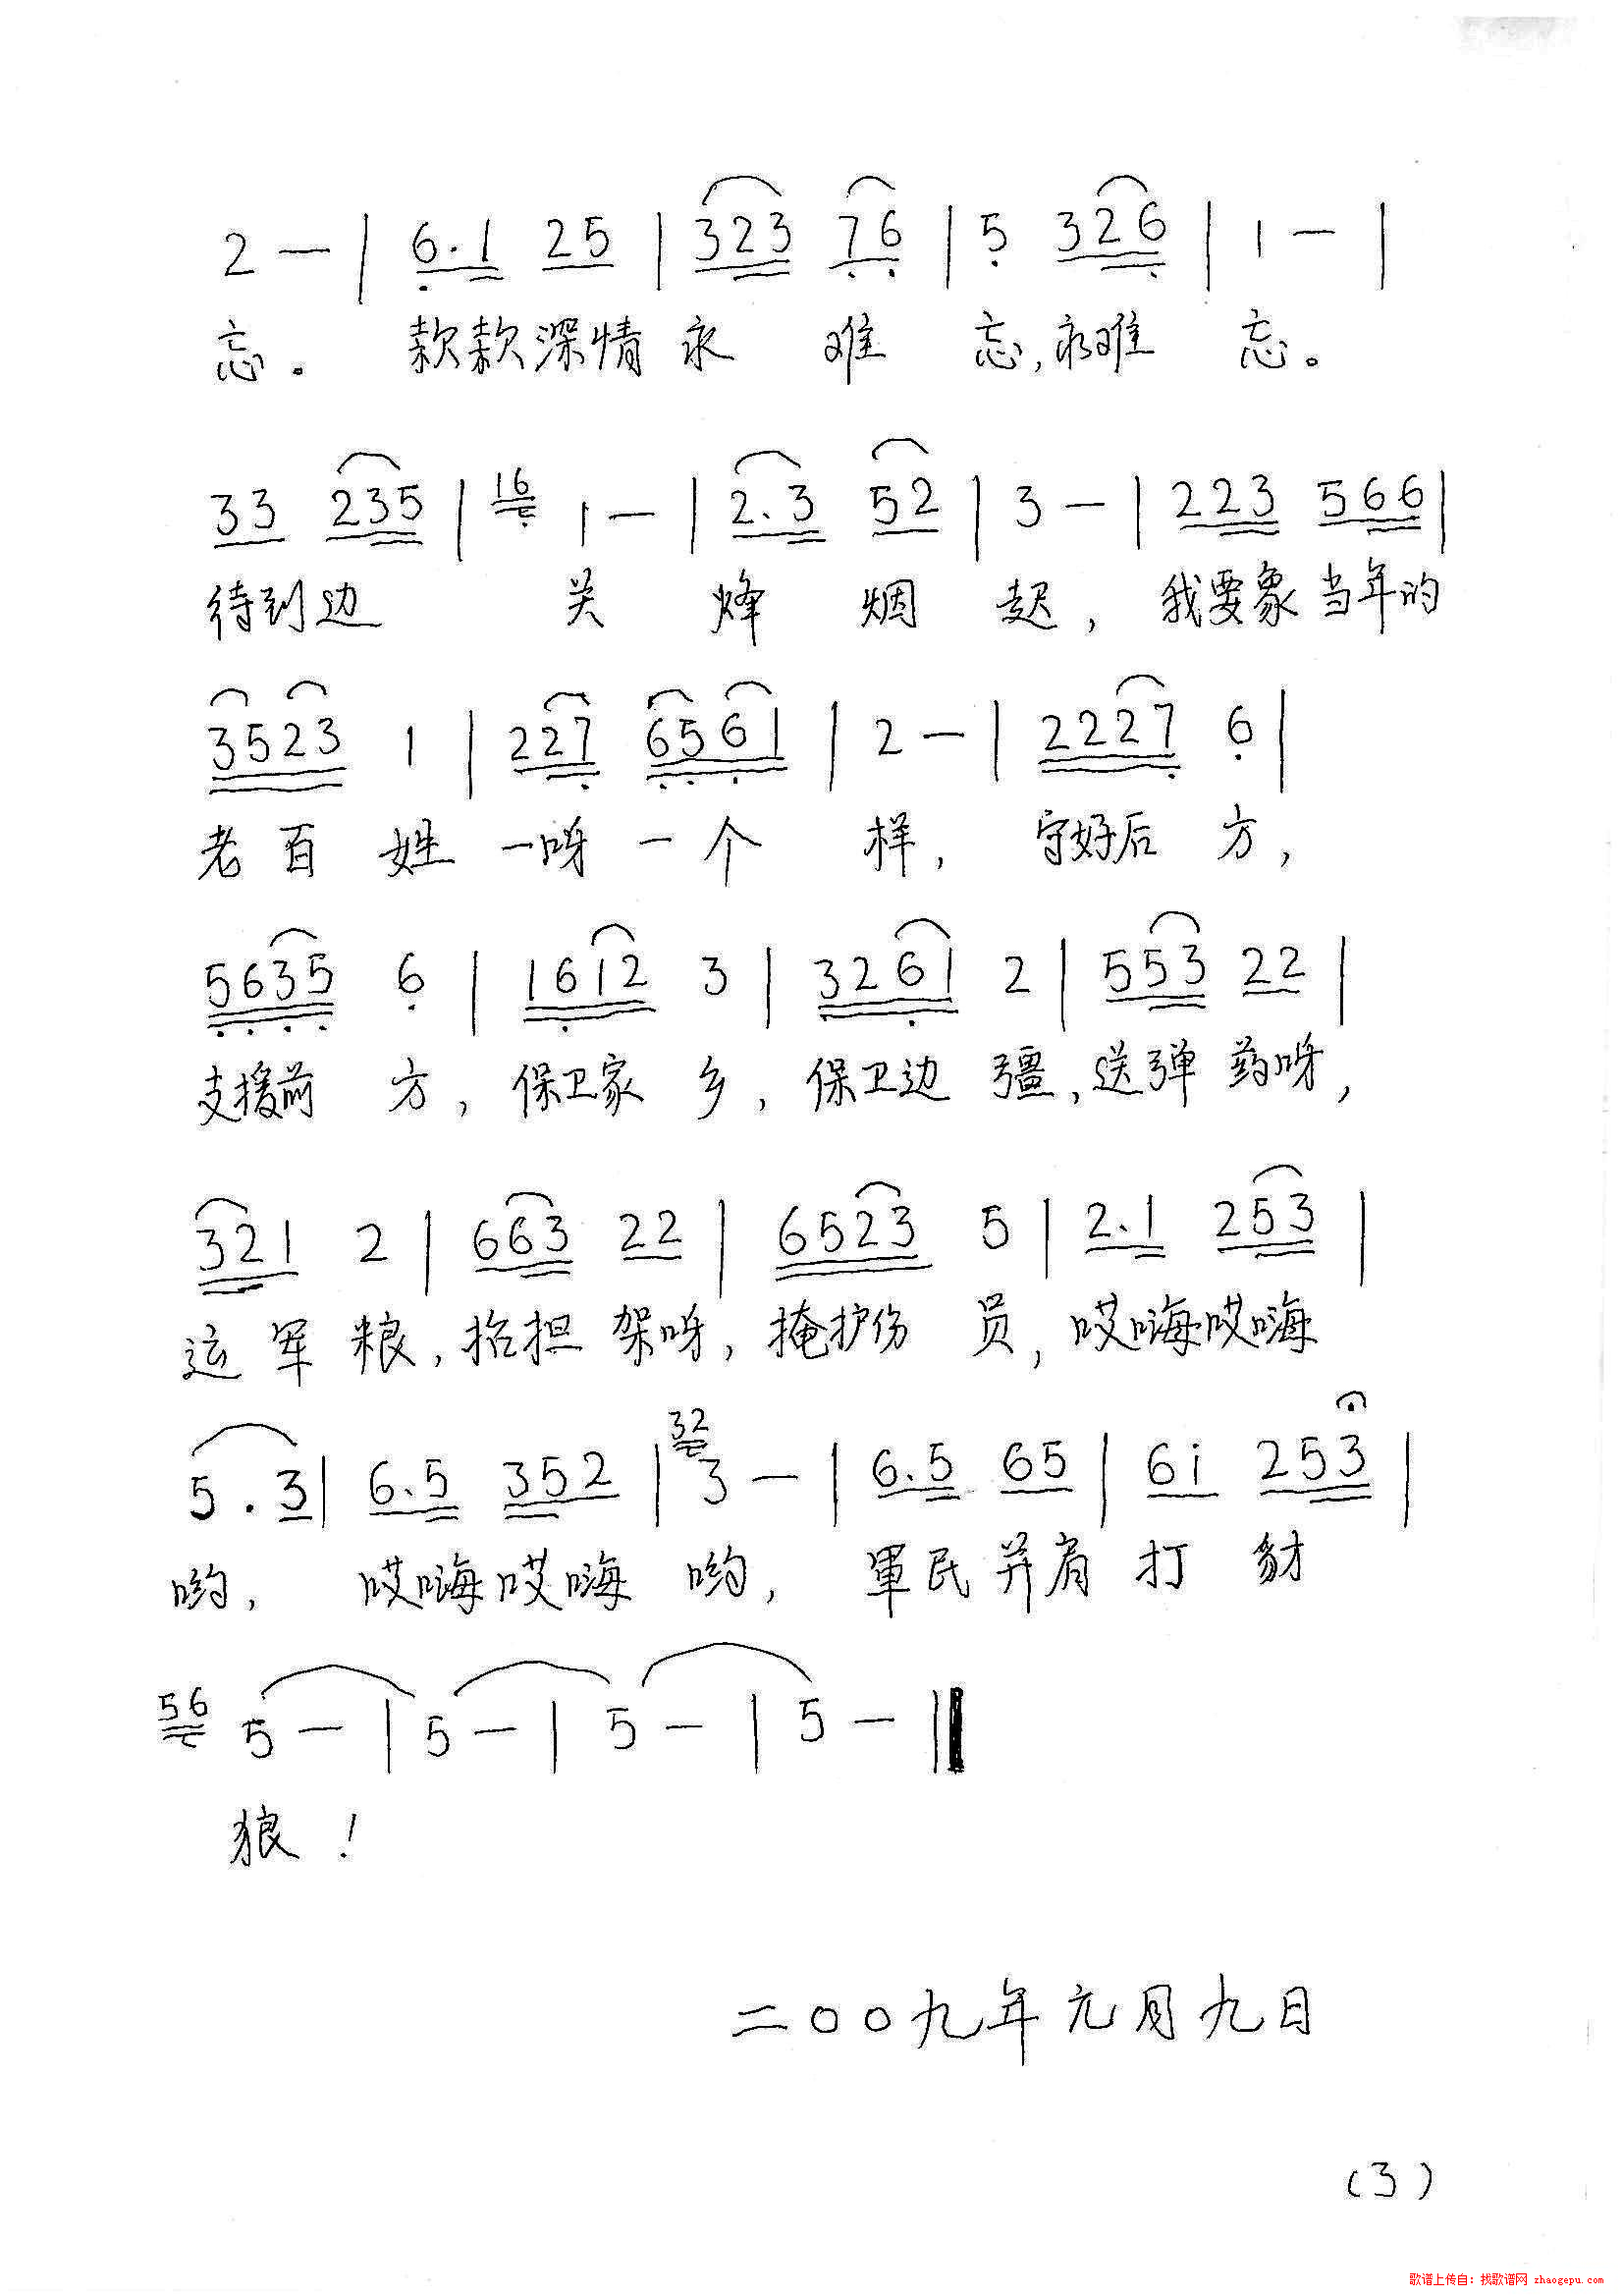 2 — | 6.1 25 | 323 76 | 5 326 | 1 — |
忘。 款款深情永 难 忘,永难 忘。
33 235 | 16 1 — | 2.3 52 | 3 — | 223 566 |
待到边 关 烽 烟 起, 我要象当年的
3523 1 | 227 6561 | 2 — | 2227 6 |
老百 姓 一呀一个 样, 守好后 方,
5635 6 | 1612 3 | 3261 2 | 553 22 |
支援前 方, 保卫家 乡, 保卫边 疆,送弹 药呀,
321 2 | 663 22 | 6523 5 | 2.1 253 |
运军 粮,抬担 架呀,掩护伤 员,哎嗨哎嗨
5.3 | 6.5 352 | 32 3 — | 6.5 65 | 6i 253 |
哟, 哎嗨哎嗨 哟, 軍民并肩 打 豺
56 5 — | 5 — | 5 — | 5 — ‖
狼!
二〇〇九年元月九日
(3)
歌谱上传自:找歌谱网 zhaogepu.com